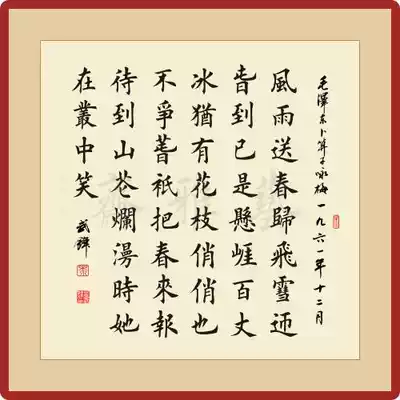 毛澤东卜算子咏梅一九六一年十二月
風雨送春歸飛雪迊
旾到已是懸崖百丈
冰猶有花枝俏俏也
不爭萅衹把春來報
待到山芲爛漫時她
在叢中笑
藝雅齋